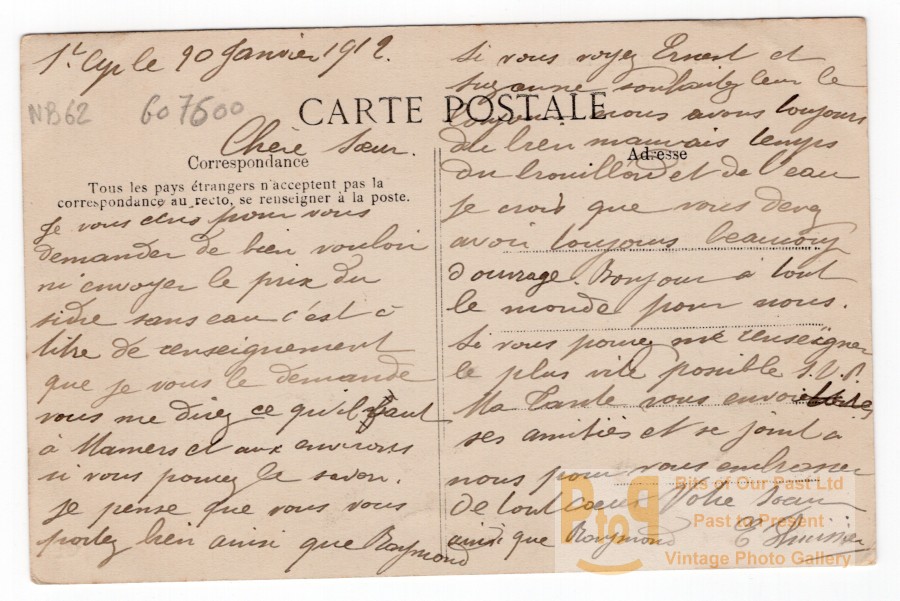 St Cyr le 20 Janvier 1912.
NB62 607600
CARTE POSTALE
Chère Sœur.
Correspondance
Tous les pays étrangers n'acceptent pas la
correspondance au recto, se renseigner à la poste.
Je vous écris pour vous
demander de bien vouloir
m'envoyer le prix du
sidre sans eau c'est à
titre de renseignement
que je vous le demande
vous me direz ce qu'il faut
à Mamers et aux environs
si vous pouvez le savoir.
je pense que vous vous
portez bien ainsi que Raymond
Si vous voyez Ernest et
Suzanne souhaitez leur le
nous avons toujours
du bien mauvais temps
Adresse
du brouillard et de l'eau
je crois que vous devez
avoir toujours beaucoup
d'ouvrage. Bonjour à tout
le monde pour nous.
Si vous pouvez me renseigner
le plus vite possible S.V.P.
Ma Tante vous envoie
ses amitiés et se joint a
nous pour vous embrasser
de tout cœur Votre Sœur
ainsi que Raymond E
BtoP
Bits of Our Past Ltd
Past to Present
Vintage Photo Gallery